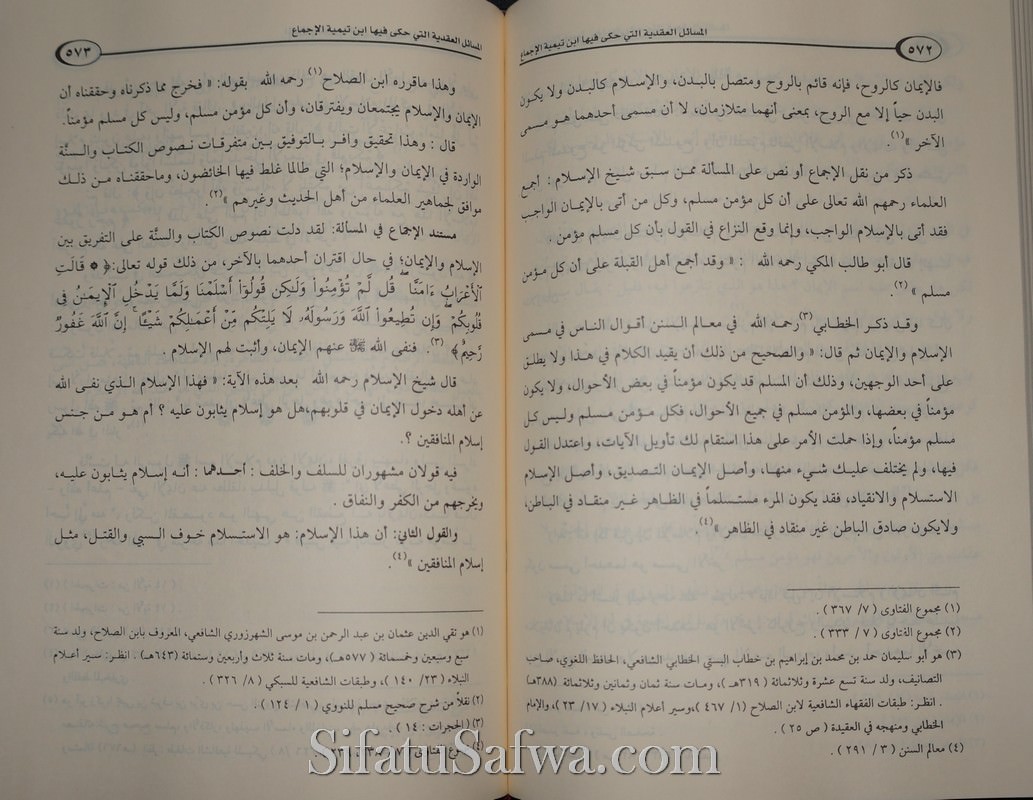 المسائل العقدية التي حكى فيها ابن تيمية الإجماع
٥٧٢
فالإيمان كالروح، فإنه قائم بالروح ومتصل بالبدن، والإسلام كالبدن ولا يكون
البدن حياً إلا مع الروح، بمعنى أنهما متلازمان، لا أن مسمى أحدهما هو مسمى
الآخر »(١).
ذكر من نقل الإجماع أو نص على المسألة ممن سبق شيخ الإسلام : أجمع
العلماء رحمهم الله تعالى على أن كل مؤمن مسلم، وكل من أتى بالإيمان الواجب
فقد أتى بالإسلام الواجب، وإنما وقع النزاع في القول بأن كل مسلم مؤمن .
قال أبو طالب المكي رحمه الله : « وقد أجمع أهل القبلة على أن كل مؤمن
مسلم »(٢).
وقد ذكر الخطابي(٣)رحمه الله في معالم السنن أقوال الناس في مسمى
الإسلام والإيمان ثم قال: « والصحيح من ذلك أن يقيد الكلام في هذا ولا يطلق
على أحد الوجهين، وذلك أن المسلم قد يكون مؤمناً في بعض الأحوال، ولا يكون
مؤمناً في بعضها، والمؤمن مسلم في جميع الأحوال، فكل مؤمن مسلم وليس كل
مسلم مؤمناً، وإذا حملت الأمر على هذا استقام لك تأويل الآيات، واعتدل القول
فيها، ولم يختلف عليك شيء منها، وأصل الإيمان التصديق، وأصل الإسلام
الاستسلام والانقياد، فقد يكون المرء مستسلماً في الظاهر غير منقاد في الباطن،
ولايكون صادق الباطن غير منقاد في الظاهر »(٤).
(١) مجموع الفتاوى ( ٧/ ٣٦٧ ) .
(٢) مجموع الفتاوى ( ٧/ ٣٣٣ ) .
(٣) هو أبو سليمان حمد بن محمد بن إبراهيم بن خطاب البستي الخطابي الشافعي، الحافظ اللغوي، صاحب
التصانيف، ولد سنة تسع عشرة وثلاثمائة ( ٣١٩هـ )، ومات سنة ثمان وثمانين وثلاثمائة (٣٨٨هـ)
. انظر: طبقات الفقهاء الشافعية لابن الصلاح (١/ ٤٦٧ )،وسير أعلام النبلاء ( ١٧/ ٢٣)، والإمام
الخطابي ومنهجه في العقيدة ( ص ٢٥ ) .
(٤) معالم السنن ( ٣/ ٢٩١ ) .
المسائل العقدية التي حكى فيها ابن تيمية الإجماع
٥٧٣
وهذا ماقرره ابن الصلاح(١) رحمه الله بقوله: « فخرج مما ذكرناه وحققناه أن
الإيمان والإسلام يجتمعان ويفترقان، وأن كل مؤمن مسلم، وليس كل مسلم مؤمناً.
قال : وهذا تحقيق وافر بالتوفيق بين متفرقات نصوص الكتاب والسنَّة
الواردة في الإيمان والإسلام؛ التي طالما غلط فيها الخائضون، وماحققناه من ذلك
موافق لجماهير العلماء من أهل الحديث وغيرهم »(٢).
مستند الإجماع في المسألة: لقد دلت نصوص الكتاب والسنَّة على التفريق بين
الإسلام والإيمان؛ في حال اقتران أحدهما بالآخر، من ذلك قوله تعالى:﴿ ۞ قَالَتِ
ٱلْأَعْرَابُ ءَامَنَّا ۖ قُل لَّمْ تُؤْمِنُوا۟ وَلَٰكِن قُولُوٓا۟ أَسْلَمْنَا وَلَمَّا يَدْخُلِ ٱلْإِيمَٰنُ فِى
قُلُوبِكُمْ ۖ وَإِن تُطِيعُوا۟ ٱللَّهَ وَرَسُولَهُۥ لَا يَلِتْكُم مِّنْ أَعْمَٰلِكُمْ شَيْـًٔا ۚ إِنَّ ٱللَّهَ غَفُورٌ
رَّحِيمٌ﴾ (٣). فنفى الله ﷻ عنهم الإيمان، وأثبت لهم الإسلام .
قال شيخ الإسلام رحمه الله بعد هذه الآية: « فهذا الإسلام الذي نفى الله
عن أهله دخول الإيمان في قلوبهم،هل هو إسلام يثابون عليه ؟ أم هو من جنس
إسلام المنافقين ؟.
فيه قولان مشهوران للسلف والخلف : أحدهما : أنه إسلام يثابون عليه،
ويخرجهم من الكفر والنفاق .
والقول الثاني: أن هذا الإسلام: هو الاستسلام خوف السبي والقتل، مثل
إسلام المنافقين »(٤).
(١) هو تقي الدين عثمان بن عبد الرحمن بن موسى الشهرزوري الشافعي، المعروف بابن الصلاح، ولد سنة
سبع وسبعين وخمسمائة ( ٥٧٧هـ)، ومات سنة ثلاث وأربعين وستمائة (٦٤٣هـ) . انظر: سير أعلام
النبلاء ( ٢٣/ ١٤٠ )، وطبقات الشافعية للسبكي ( ٨/ ٣٢٦ ) .
(٢) نقلاً من شرح صحيح مسلم للنووي ( ١/ ١٢٤ ) .
(٣) (الحجرات : ١٤ ) .
(٤)
SifatuSafwa.com